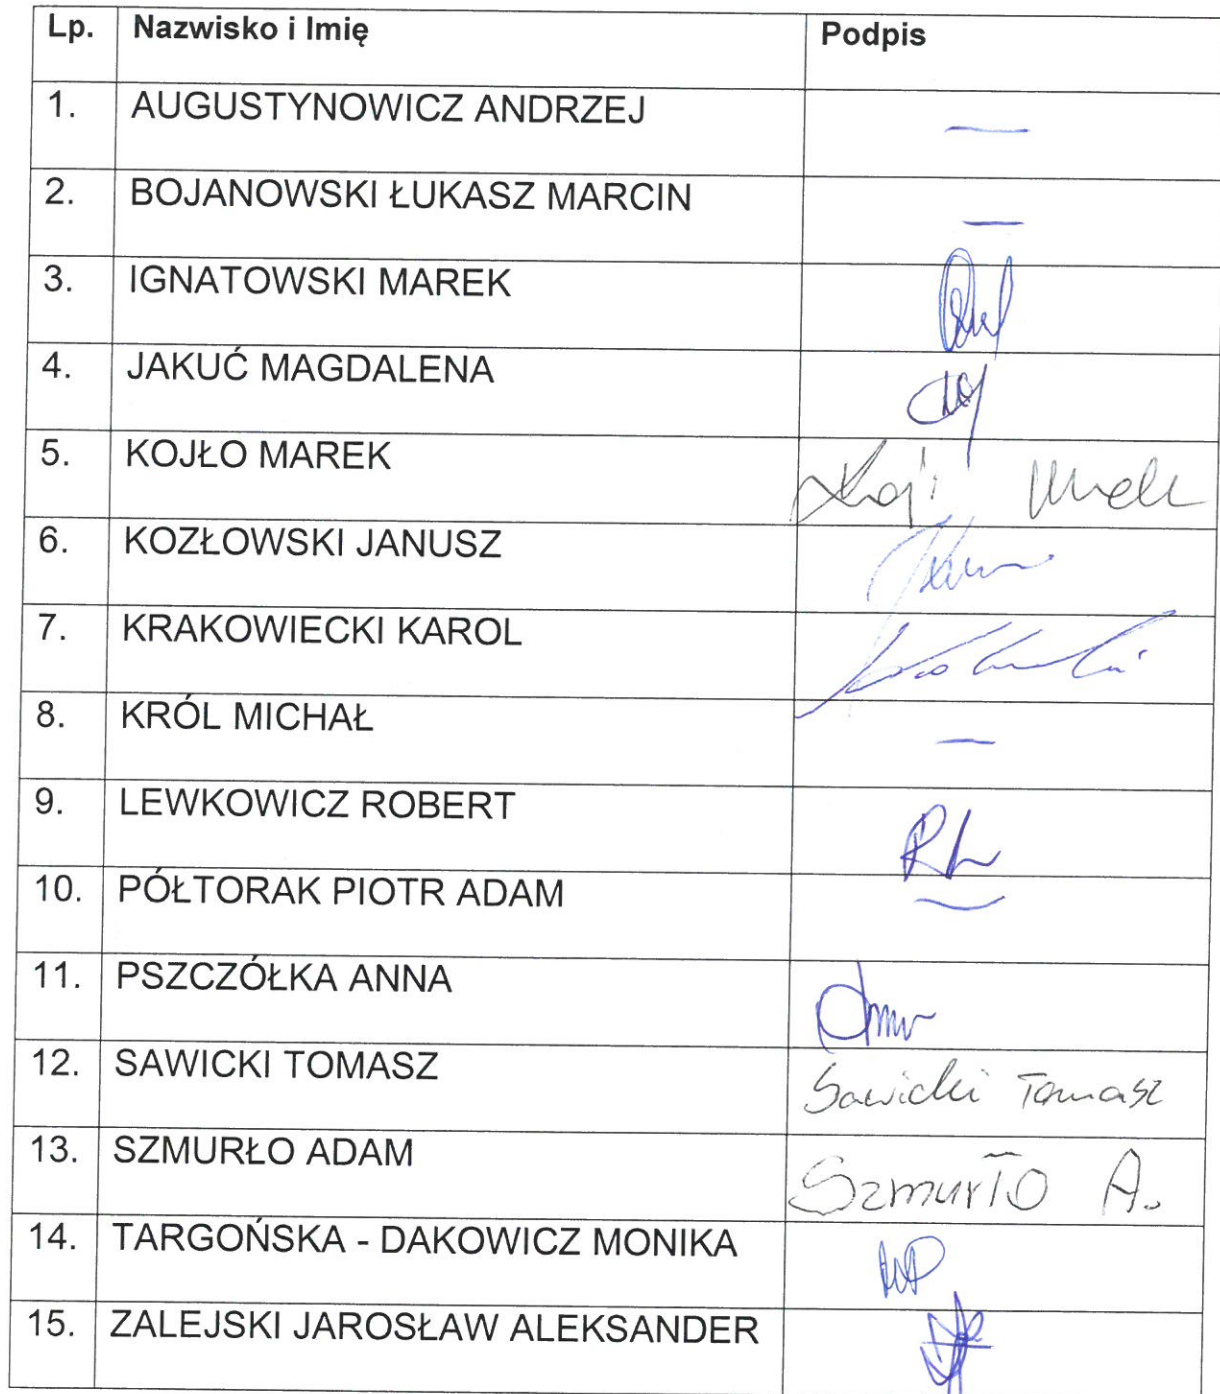 Lp. Nazwisko i Imię Podpis
1. AUGUSTYNOWICZ ANDRZEJ —
2. BOJANOWSKI ŁUKASZ MARCIN —
3. IGNATOWSKI MAREK
4. JAKUĆ MAGDALENA
5. KOJŁO MAREK
6. KOZŁOWSKI JANUSZ
7. KRAKOWIECKI KAROL
8. KRÓL MICHAŁ —
9. LEWKOWICZ ROBERT
10. PÓŁTORAK PIOTR ADAM —
11. PSZCZÓŁKA ANNA
12. SAWICKI TOMASZ Sawicki Tomasz
13. SZMURŁO ADAM Szmurło A.
14. TARGOŃSKA - DAKOWICZ MONIKA
15. ZALEJSKI JAROSŁAW ALEKSANDER